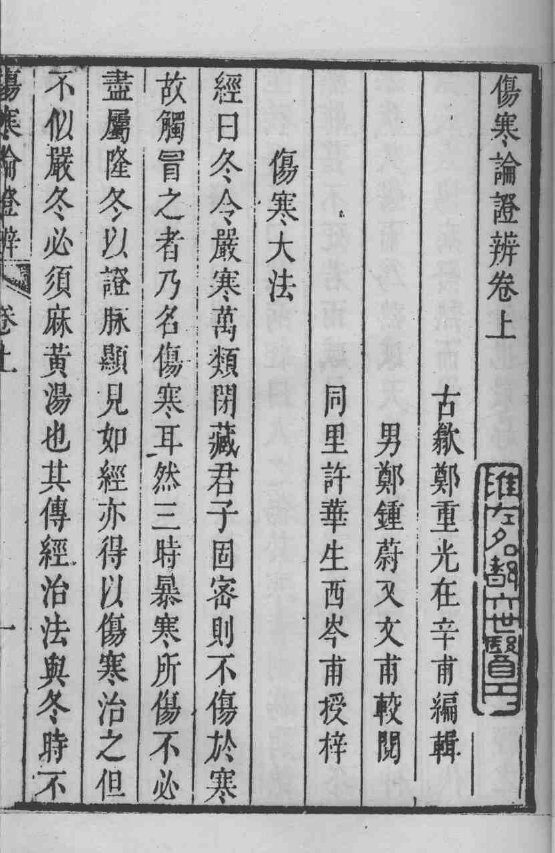 傷寒論證辨卷上
古歙鄭重光在辛甫編輯
男鄭鍾蔚又文甫較閱
同里許華生西岑甫授梓
傷寒大法
經曰冬令嚴寒萬類閉藏君子固密則不傷於寒
故觸冒之者乃名傷寒耳然三時暴寒所傷不必
盡屬隆冬以證脉顯見如經亦得以傷寒治之但
不似嚴冬必須麻黃湯也其傳經治法與冬時不
傷寒論證辨 卷上 一